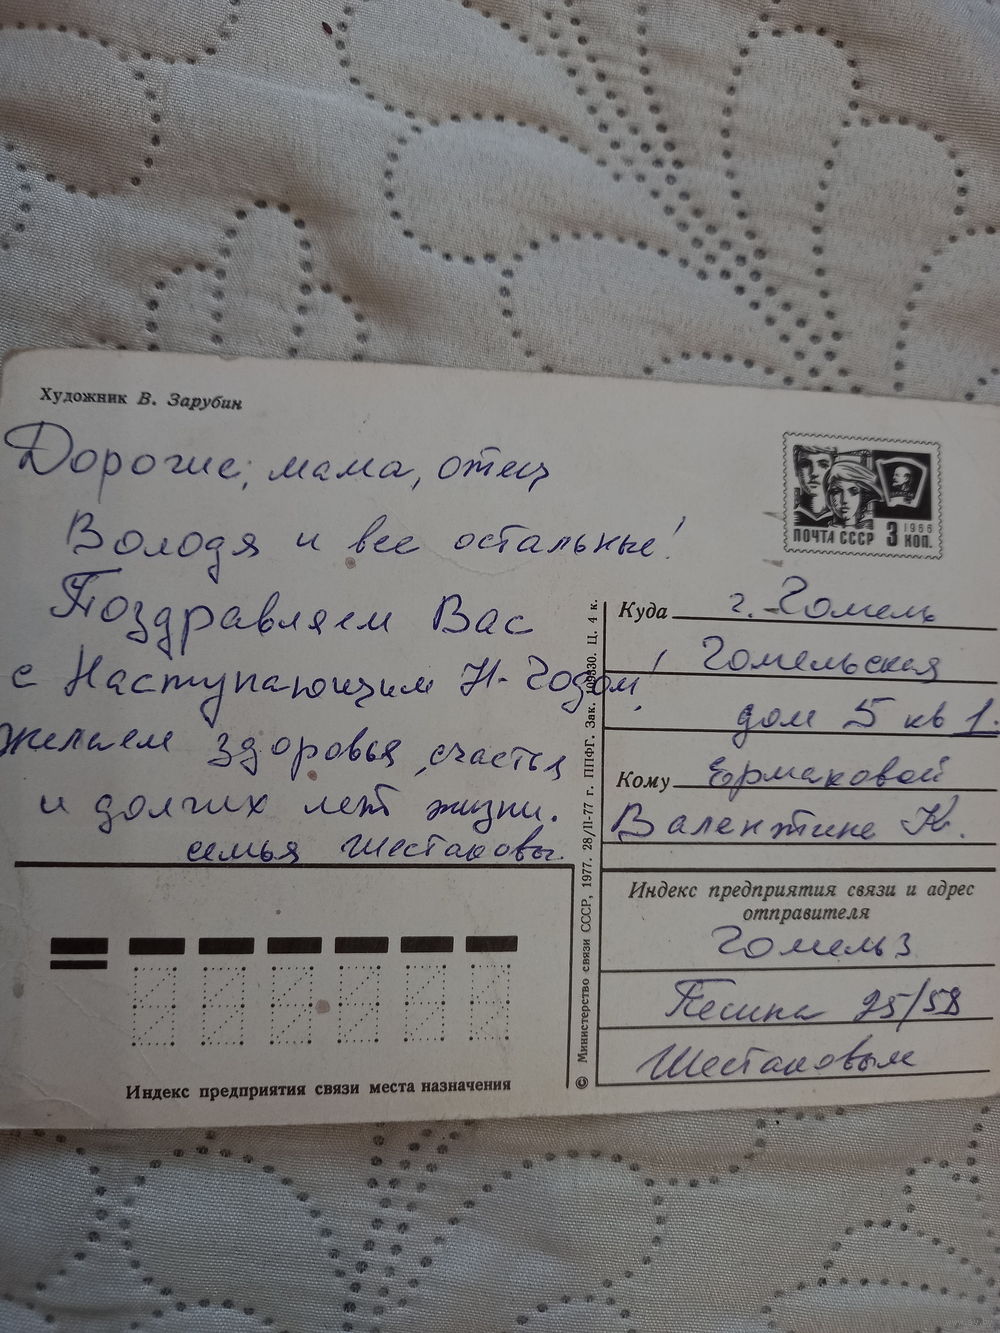 Художник В. Зарубин
Дорогие, мама, отец
Володя и все остальные!
Поздравляем Вас
с Наступающим Н-Годом!
желаем здоровья, счастья
и долгих лет жизни.
семья Шестаковы.
1966
ПОЧТА СССР 3 КОП.
Куда г. Гомель
Гомельская
дом 5 кв 1.
Кому Ермаковой
Валентине К.
Индекс предприятия связи и адрес
отправителя
Гомель 3
Песина 25/58
Шестаковым
Индекс предприятия связи места назначения
© Министерство связи СССР, 1977. 28/II-77 г. ППФГ. Зак. Ц. 4 к.